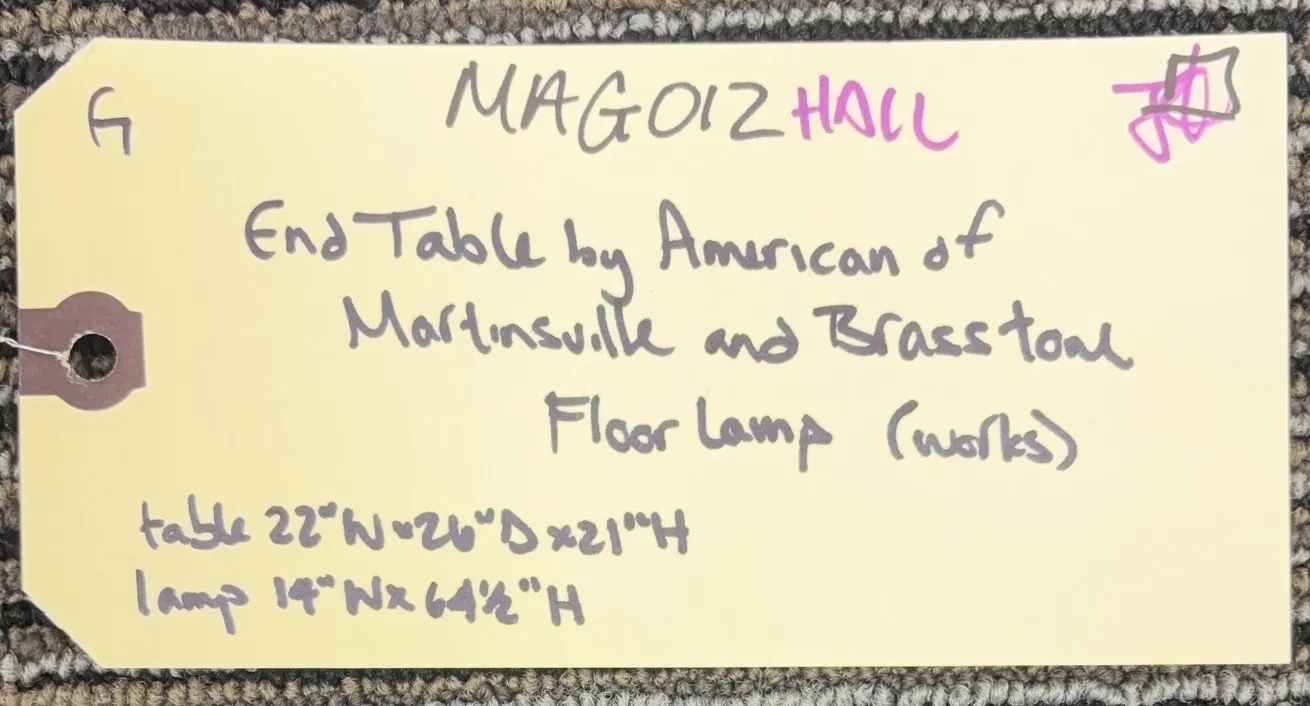 G
MAG012 HALL
End Table by American of
Martinsville and Brass tone
Floor Lamp (works)
table 22"W x 26"D x 21"H
lamp 14"W x 64½"H